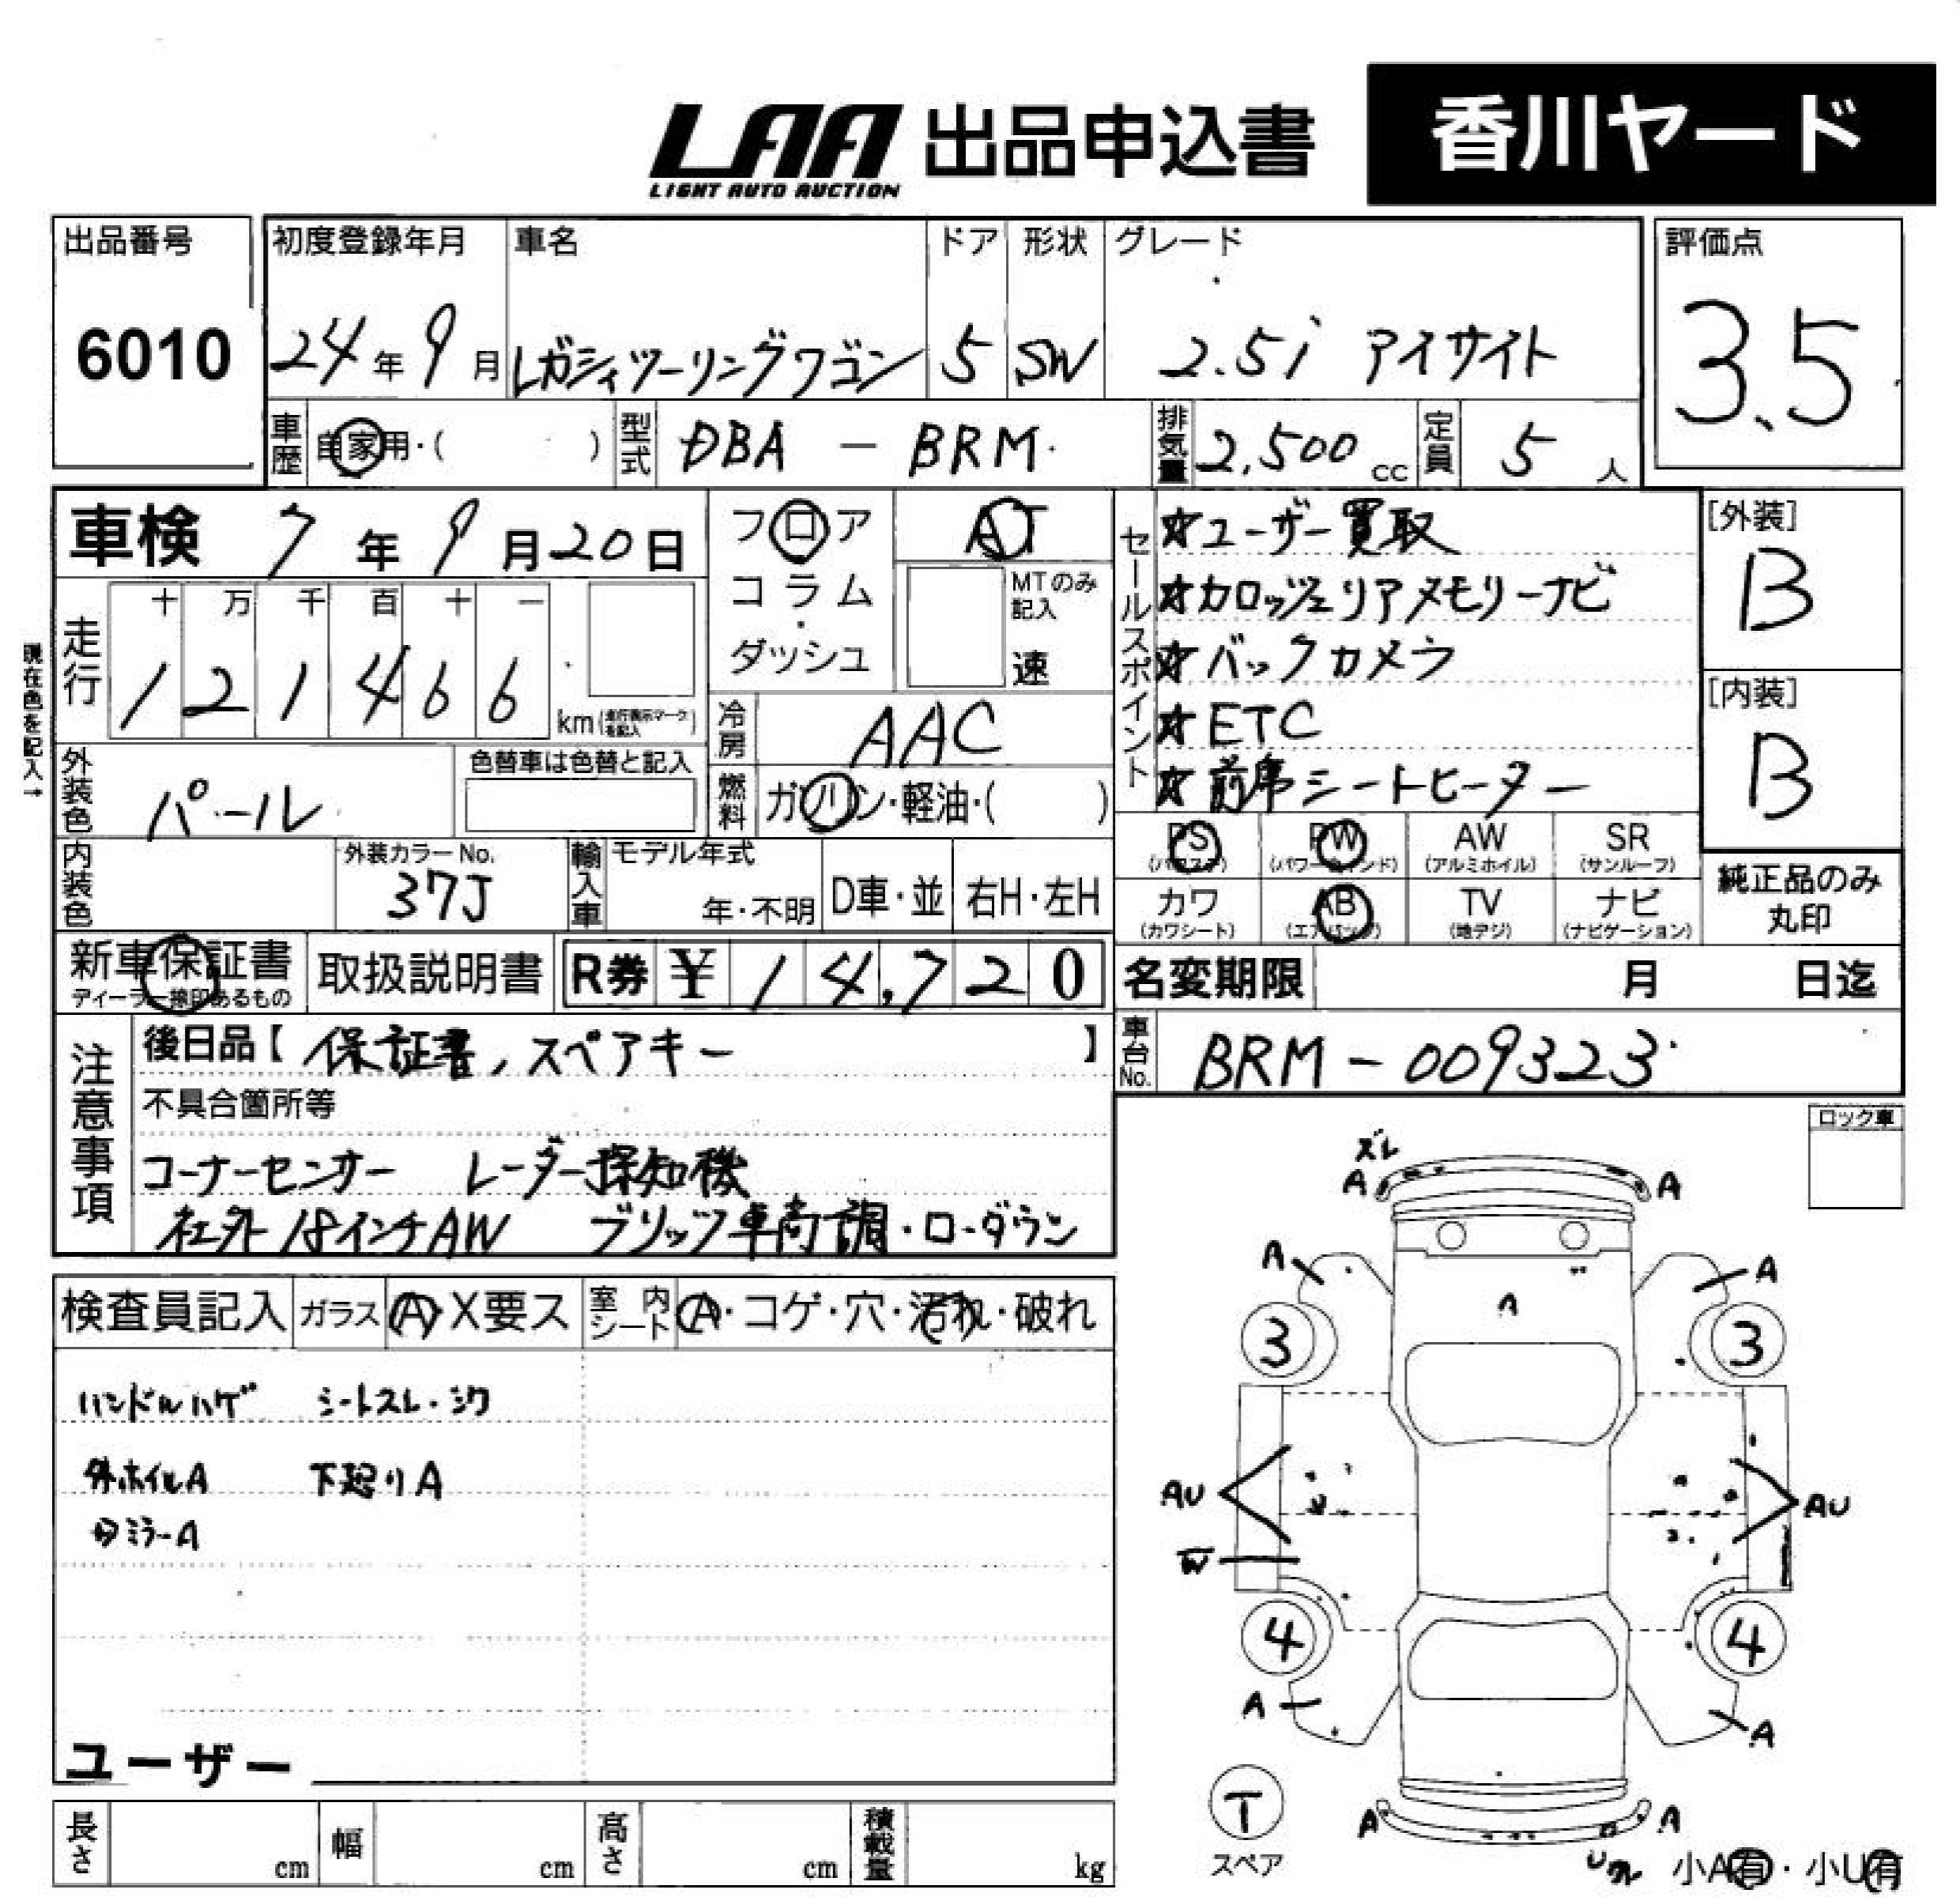 LAA 出品申込書 香川ヤード
LIGHT AUTO AUCTION
出品番号 初度登録年月 車名 ドア 形状 グレード 評価点
6010 24年9月 レガシィツーリングワゴン 5 SW 2.5i アイサイト 3.5
車歴 自家用・( ) 型式 DBA - BRM 排気量 2,500 cc 定員 5 人
車検 7年9月20日
フロア AT
コラム・ダッシュ MTのみ記入 速
走行 十 万 千 百 十 一
1 2 1 4 6 6 km (走行表示マークを記入)
現在色を記入→
冷房 AAC
外装色 パール 色替車は色替と記入
燃料 ガソリン・軽油・( )
内装色 外装カラーNo. 37J 輸入車 モデル年式 年・不明 D車・並 右H・左H
セールスポイント
☆ユーザー買取
☆カロッジェリアメモリーナビ
☆バックカメラ
☆ETC
☆前席シートヒーター
[外装] B
[内装] B
PS (パワステ) PW (パワーウインド) AW (アルミホイル) SR (サンルーフ)
カワ (カワシート) AB (エアバック) TV (地デジ) ナビ (ナビゲーション)
純正品のみ丸印
新車保証書 ディーラー捺印あるもの 取扱説明書 R券 ¥ 1 4,7 2 0
名変期限 月 日迄
車台No. BRM-009323
注意事項
後日品【 保証書、スペアキー 】
不具合箇所等
コーナーセンサー レーダー探知機
社外18インチAW ブリッツ車高調・ローダウン
ロック車
検査員記入 ガラス A・X要ス 室内シート A・コゲ・穴・汚れ・破れ
ハンドルハゲ シートスレ・シワ
外ホイルA 下廻りA
ミラーA
ユーザー
ズレ
A A
A A
A
3 3
AU AU
W
4 4
A A
T
スペア
A A
小A有・小U有
長さ cm 幅 cm 高さ cm 積載量 kg